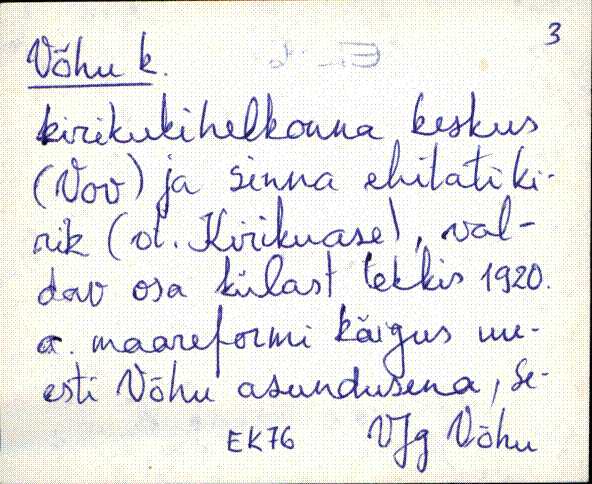 3
Võhu k.
kirikukihelkonna keskus
(Vov) ja sinna ehitati ki-
rik (vt. Kirikuase), val-
dav osa külast tekkis 1920.
a. maareformi käigus uu-
esti Võhu asundusena, se-
EK76 VJg Võhu